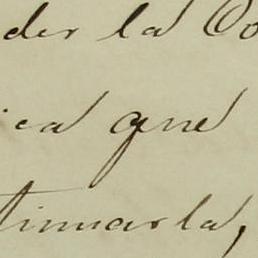 der la Co
ica que
tinuarla,